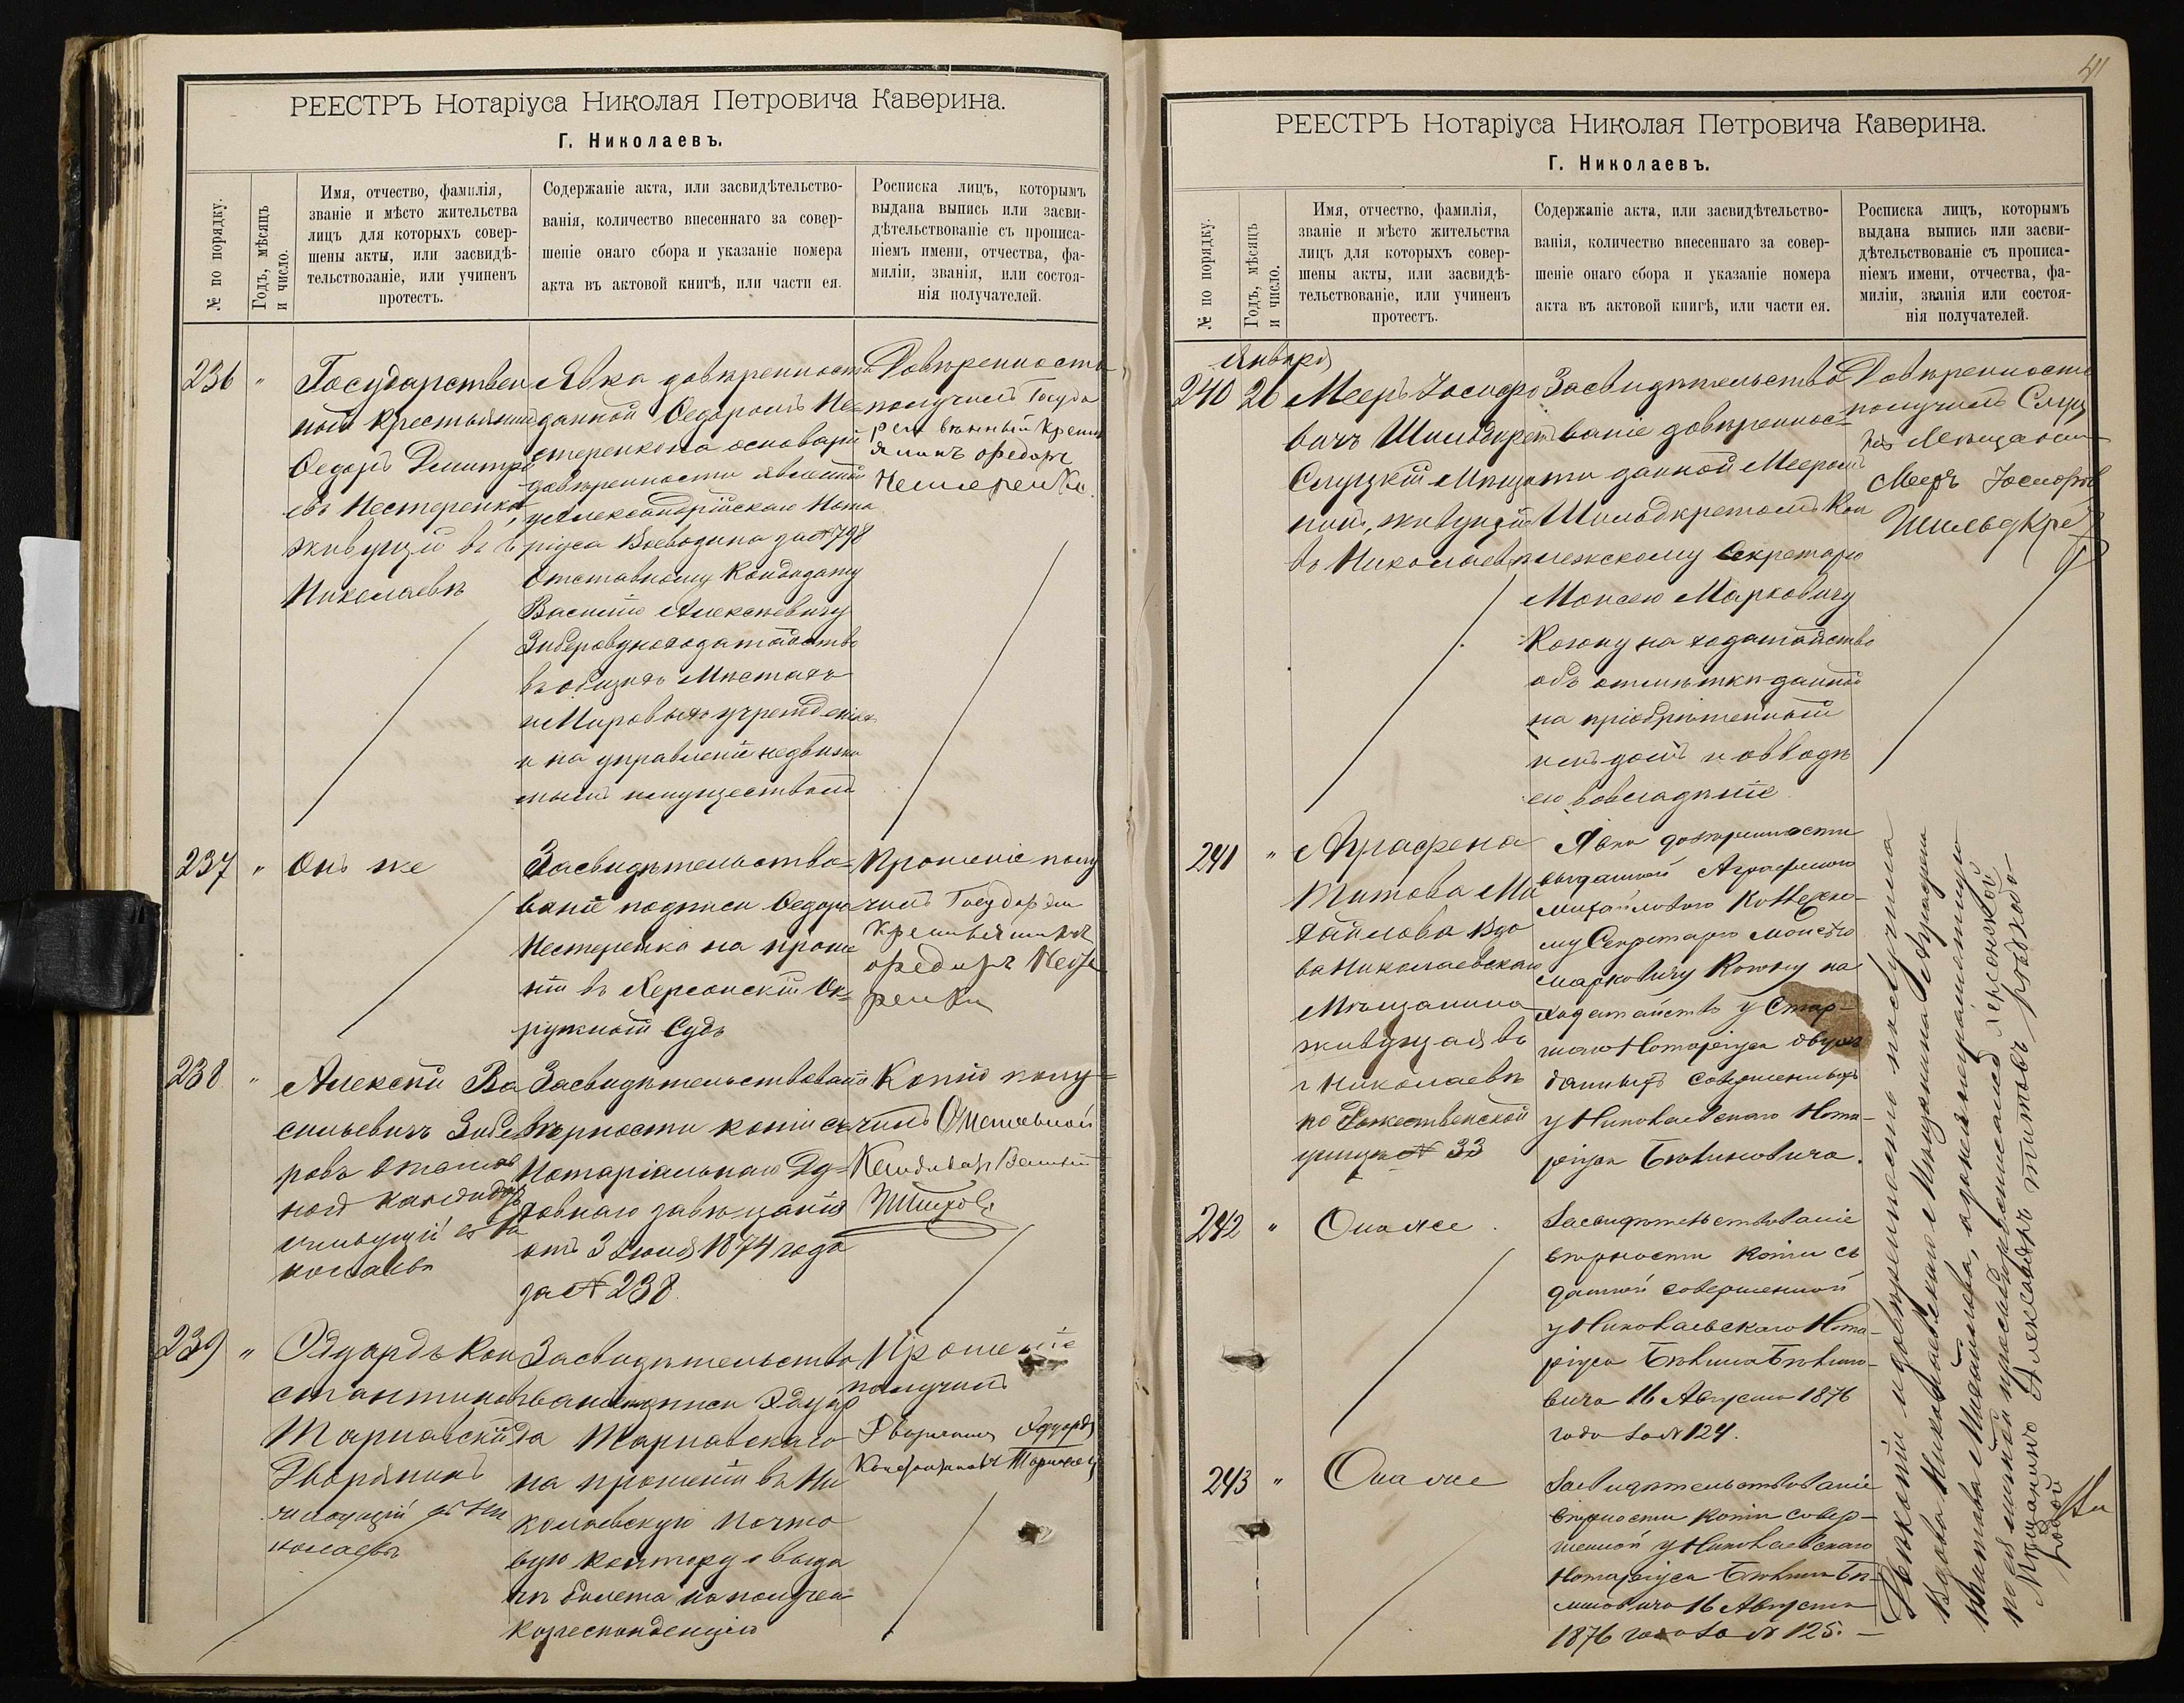 РЕЕСТРЪ Нотаріуса Николая Петровича Каверина.
Г. Николаевъ.
№ по порядку.
Годъ, мѣсяцъ
и число.
Имя, отчество, фамилія,
званіе и мѣсто жительства
лицъ для которыхъ совер-
шены акты, или засвидѣ-
тельствованіе, или учиненъ
протестъ.
Содержаніе акта, или засвидѣтельство-
ванія, количество внесеннаго за совер-
шеніе онаго сбора и указаніе номера
акта въ актовой книгѣ, или части ея.
Росписка лицъ, которымъ
выдана выпись или засви-
дѣтельствованіе съ прописа-
ніемъ имени, отчества, фа-
миліи, званія, или состоя-
нія получателей.
236 "
Государствен
ный крестьянинъ
Ѳедоръ Дмитрі
евъ Нестеренко,
живущій въ г.
Николаевѣ
Явка довѣренности
данной Ѳедоромъ Не=
стеренко на основаніи
довѣренности явленной
у Александрійскаго Нота
ріуса Воеводина за № 798
отставному Кандидату
Василію Алексѣевичу
на ходатайство
въ общихъ Мѣстахъ
и Мировыхъ учрежденіяхъ
и на управленіе недвижи
мымъ имуществомъ
Довѣренность
получилъ Госуда
рственный Крест
янинъ Федоръ
Нестеренко.
237 "
Онъ же
Засвидѣтельство=
ваніе подписи Ѳедора
Нестеренко на проше
ніи въ Херсонскій Ок=
ружной Судъ
Прошеніе полу
чилъ Государствен
Крестьянинъ
Федоръ Несте
ренко
238 "
Алексѣй Ва
сильевичъ
ровъ отстав
ной кандидатъ
живущій въ Ни
колаевѣ
Засвидѣтельствованіе
вѣрности копіи съ
Нотаріальнаго Ду=
ховнаго завѣщанія
отъ 3 Іюня 1874 года
за № 238.
Копію полу=
чилъ Отставной
Кандидатъ
239 "
Эдуардъ Кон
стантиновъ
Тарнавскій
Дворянинъ
живущій въ Ни
колаевѣ
Засвидѣтельство
ваніе подписи Эдуар
да Тарнавскаго
на прошеніи въ Ни
колаевскую Почто
вую контору о выда
чѣ билета на получен
корреспонденцію
Прошеніе
получилъ
Дворянинъ Эдуардъ
Константиновъ Тарнавскій
41
РЕЕСТРЪ Нотаріуса Николая Петровича Каверина.
Г. Николаевъ.
№ по порядку.
Годъ, мѣсяцъ
и число.
Имя, отчество, фамилія,
званіе и мѣсто жительства
лицъ для которыхъ совер-
шены акты, или засвидѣ-
тельствованіе, или учиненъ
протестъ.
Содержаніе акта, или засвидѣтельство-
ванія, количество внесеннаго за совер-
шеніе онаго сбора и указаніе номера
акта въ актовой книгѣ, или части ея.
Росписка лицъ, которымъ
выдана выпись или засви-
дѣтельствованіе съ прописа-
ніемъ имени, отчества, фа-
миліи, званія или состоя-
нія получателей.
Января
240 26
Мееръ Іосифо
вичъ Шильдкретъ
Слуцкій Мѣща
нинъ, живущій
въ Николаевѣ
Засвидѣтельство
ваніе довѣреннос=
ти данной Мееромъ
Шильдкретомъ Кол
лежскому Секретарю
Моисею Марковичу
Когону на ходатайство
объ отмѣткѣ данной
на пріобрѣтенный
имъ домъ и о вводѣ
его во владѣніе
Довѣренность
получилъ Слуц
кій Мещанинъ
Мееръ Іосифов
Шильдкрет
241 "
Аграфена
Титова Ми
хайлова вдо
ва Николаевскаго
Мѣщанина
живущая въ
г Николаевѣ
по Рожественской
улицѣ № 33
Явка довѣренности
выданной Аграфеною
Михайловою Коллежско-
му Секретарю Моисею
Марковичу Когону на
ходатайство у Стар-
шаго Нотаріуса двухъ
данныхъ совершенныхъ
у Николаевскаго Нота-
ріуса Бѣлиновича.
242 "
Она же.
Засвидѣтельствованіе
вѣрности копіи съ
данной совершенной
у Николаевскаго Нота-
ріуса
вича 16 Августа 1876
года за № 124.
243 "
Она же
Засвидѣтельствованіе
вѣрности копіи совер-
шенной у Николаевскаго
Нотаріуса
16 Августа
1876 года за № 125. –
копіи и довѣренность получила
Вдова Николаевскаго Мѣщанина Аграфена
Титова Михайлова, а за нея неграмотную
по ея личной просьбѣ росписался Херсонской
Мѣщанинъ Александръ Титовъ